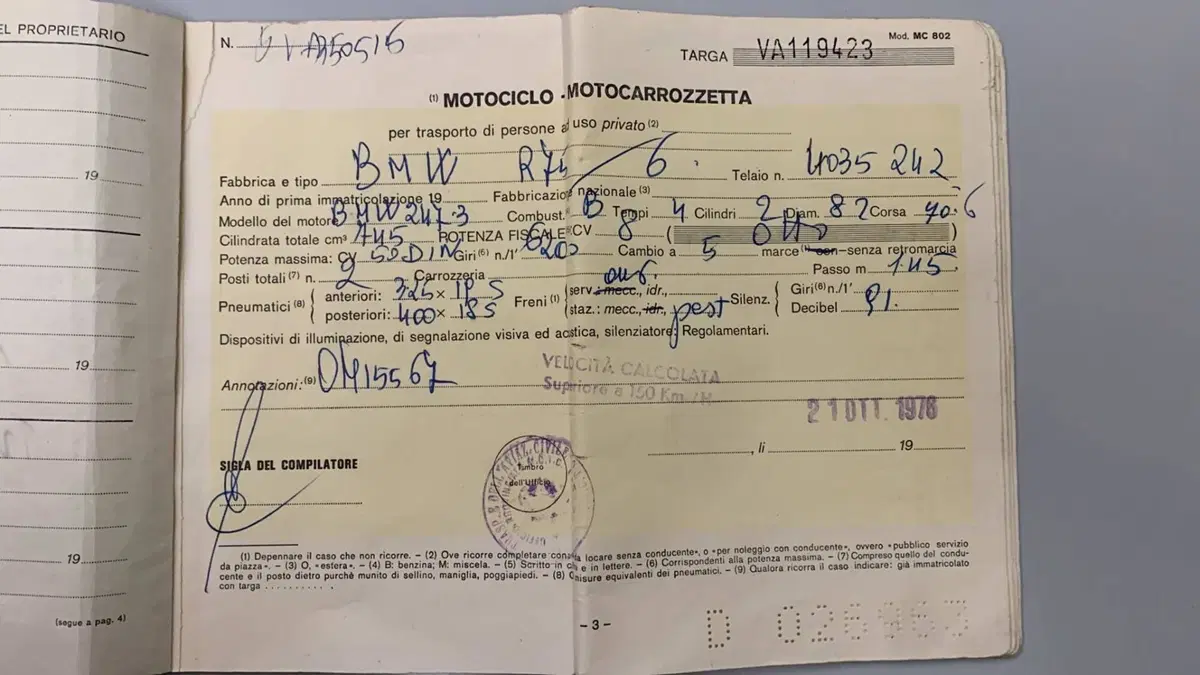 EL PROPRIETARIO
Mod. MC 802
N.
TARGA VA119423
(1) MOTOCICLO - MOTOCARROZZETTA
per trasporto di persone ad uso privato (2)
Fabbrica e tipo BMW R75/6 Telaio n. 4035 242
Anno di prima immatricolazione 19 Fabbricazione nazionale (3)
Modello del motore BMW 247.3 Combust. B Tempi 4 Cilindri 2 Diam. 82 Corsa 70.6
Cilindrata totale cm³ 745 POTENZA FISCALE CV 8 ( OTTO )
Potenza massima: CV 50 DIN Giri (6) n./1' 6200 Cambio a 5 marce (1) con-senza retromarcia
Posti totali (7) n. 2 Carrozzeria Passo m 1.45
Pneumatici (8) anteriori: 325 × 19 S Freni (1) serv.: mecc., idr., Silenz. Giri (6) n./1'
posteriori: 400 × 18 S staz.: mecc., idr., Decibel 91.
Dispositivi di illuminazione, di segnalazione visiva ed acustica, silenziatore: Regolamentari.
Annotazioni: (9) OM15567
VELOCITÀ CALCOLATA
Supriore a 150 Km./H
21 OTT. 1976
, li 19
SIGLA DEL COMPILATORE
Timbro
dell'Ufficio
(1) Depennare il caso che non ricorre. - (2) Ove ricorre completare con «da locare senza conducente», o «per noleggio con conducente», ovvero «pubblico servizio
da piazza». - (3) O, «estera». - (4) B: benzina; M: miscela. - (5) Scritto in cifre e in lettere. - (6) Corrispondenti alla potenza massima. - (7) Compreso quello del condu-
cente e il posto dietro purchè munito di sellino, maniglia, poggiapiedi. - (8) O misure equivalenti dei pneumatici. - (9) Qualora ricorra il caso indicare: già immatricolato
con targa . . . . . . . . . .
- 3 -
19
19
19
(segue a pag. 4)